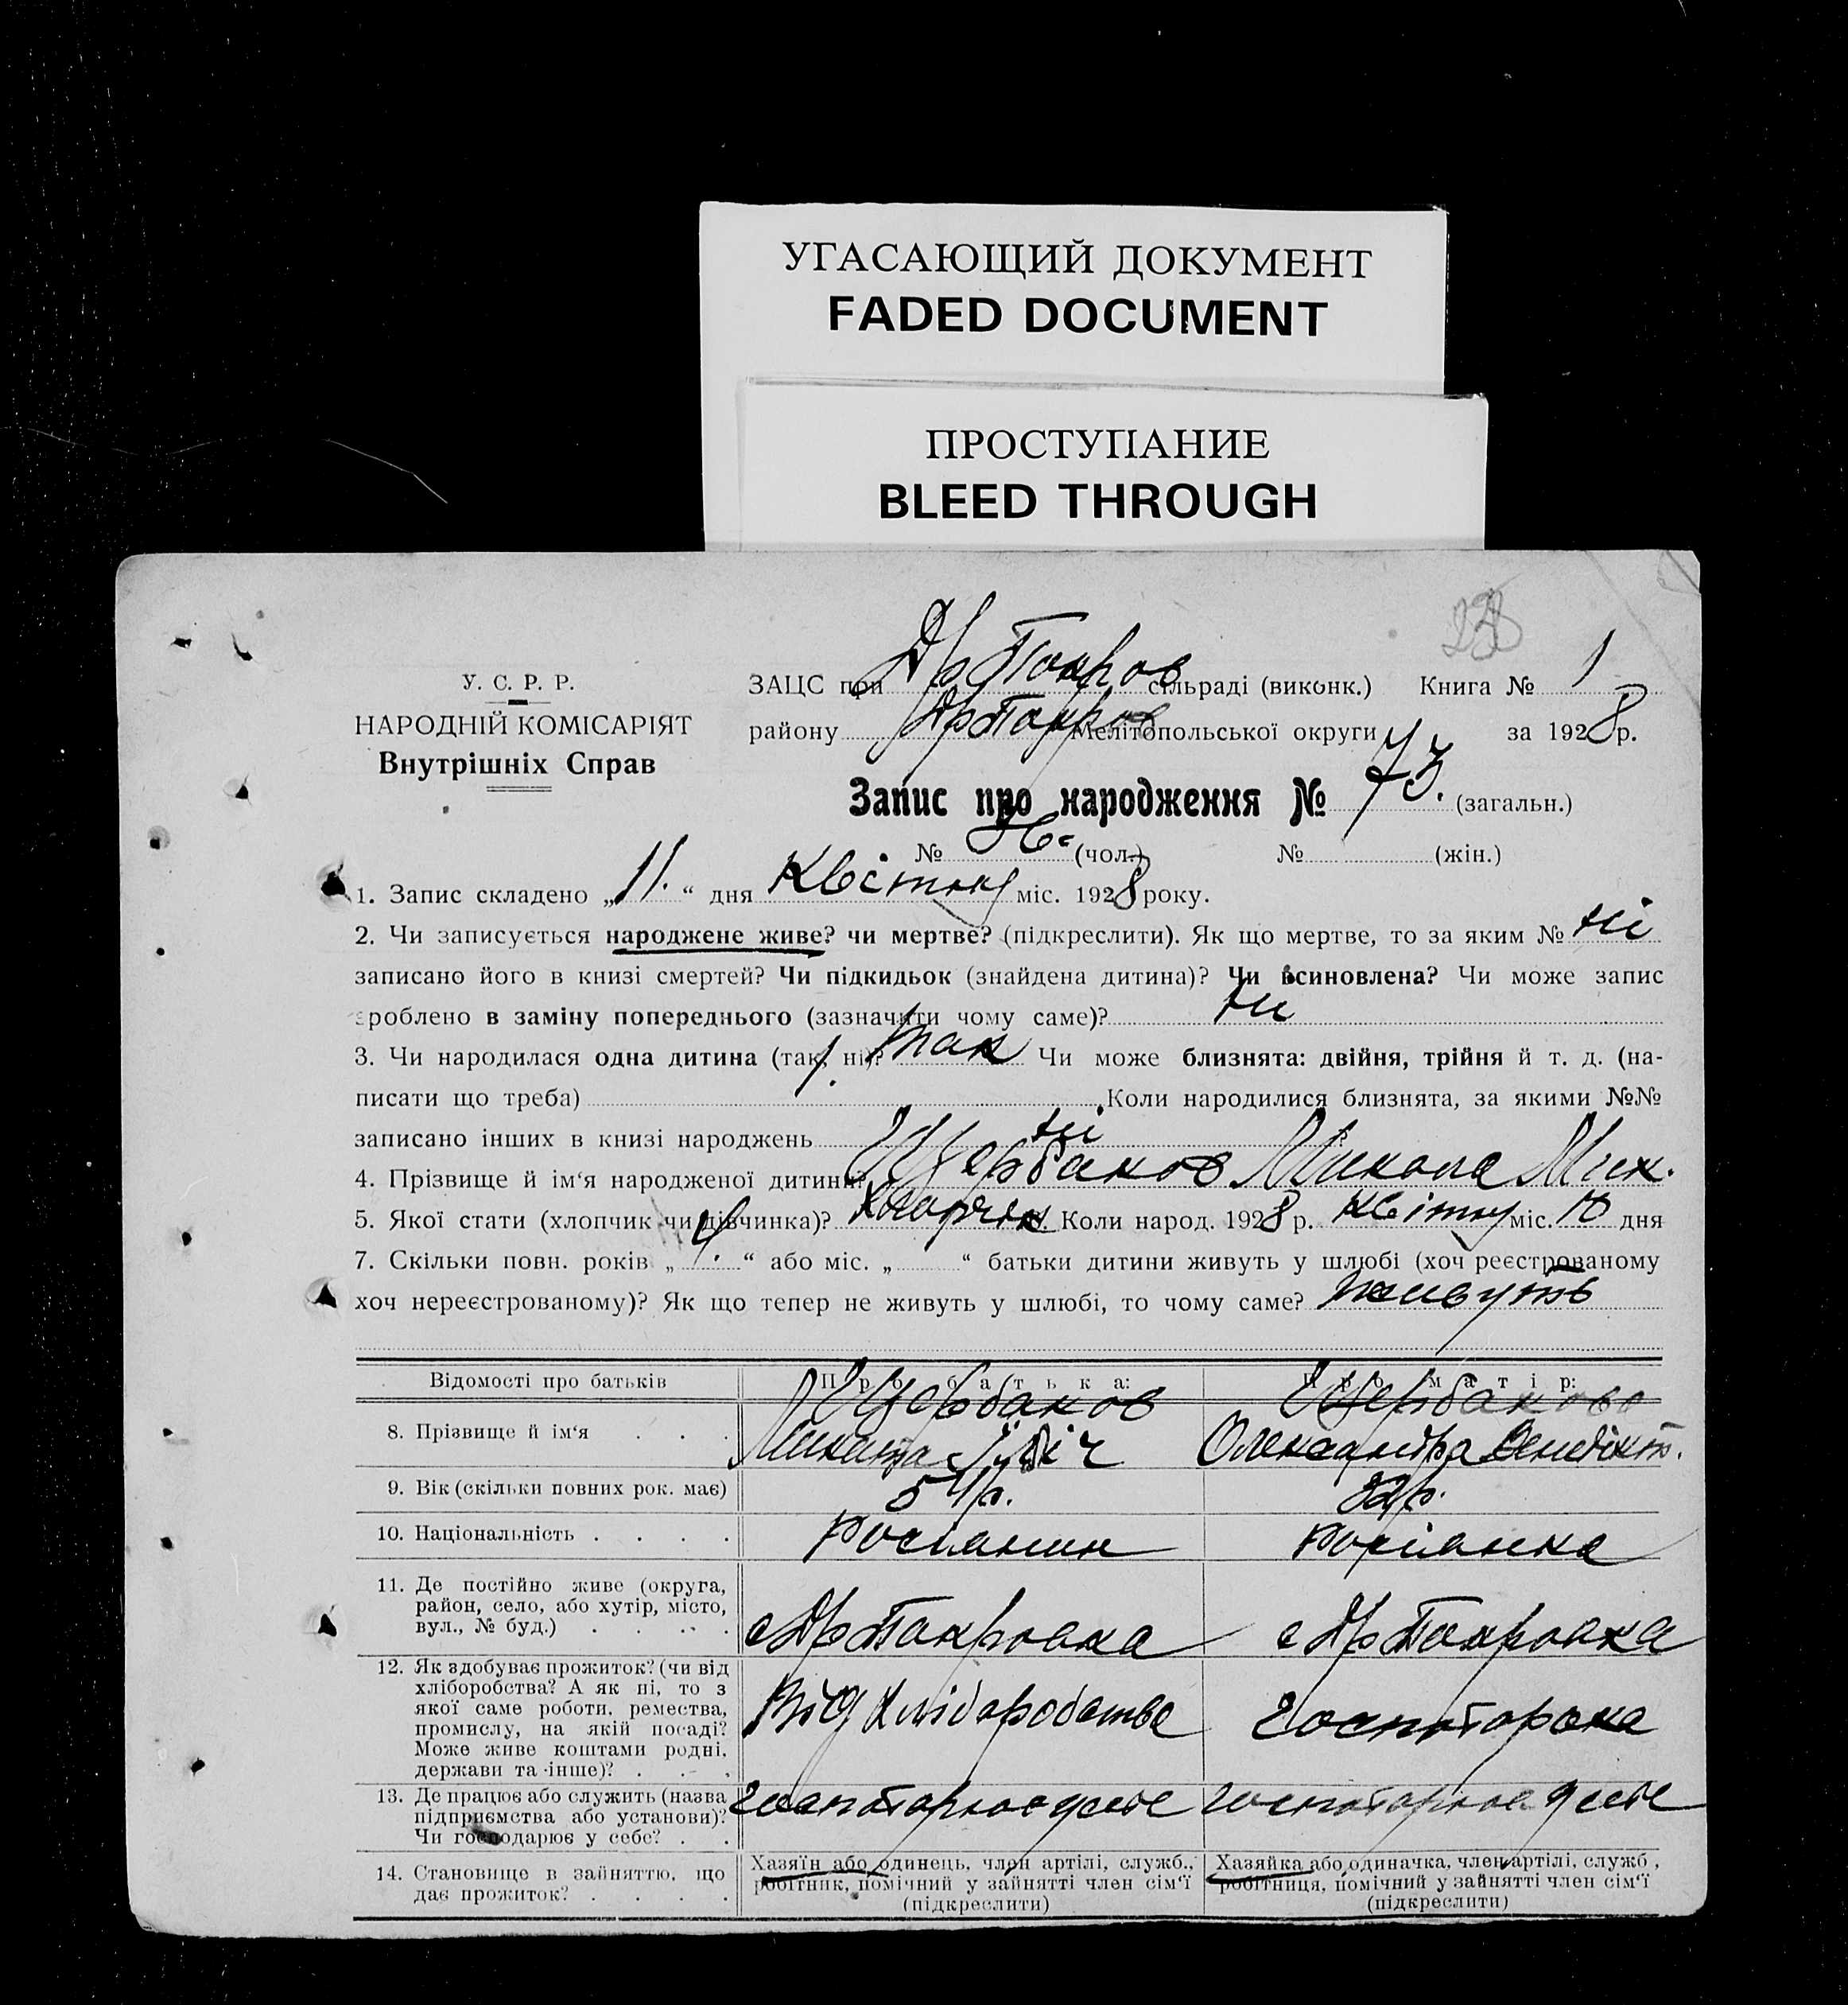 УГАСАЮЩИЙ ДОКУМЕНТ
FADED DOCUMENT
ПРОСТУПАНИЕ
BLEED THROUGH
У. С. Р. Р.
НАРОДНІЙ КОМІСАРІЯТ
Внутрішніх Справ
ЗАЦС при Др Покров сільраді (виконк.) Книга № 1
району Др Покров Мелітопольської округи за 1928 р.
Запис про народження № 73. (загальн.)
№ 36 (чол.) № (жін.)
1. Запис складено „11.“ дня Квітня міс. 1928 року.
2. Чи записується народжене живе? чи мертве? (підкреслити). Як що мертве, то за яким № ні
записано його в книзі смертей? Чи підкидьок (знайдена дитина)? Чи всиновлена? Чи може запис
зроблено в заміну попереднього (зазначити чому саме)? ни
3. Чи народилася одна дитина (так, ні)? так Чи може близнята: двійня, трійня й т. д. (на-
писати що треба) Коли народилися близнята, за якими №№
записано інших в книзі народжень ні
4. Прізвище й ім‘я народженої дитини? Щербаков Микола Мик.
5. Якої стати (хлопчик чи дівчинка)? Хлопчик Коли народ. 1928 р. Квітня міс. 10 дня
7. Скільки повн. років „4.“ або міс. „ “ батьки дитини живуть у шлюбі (хоч реєстрованому
хоч нереєстрованому)? Як що тепер не живуть у шлюбі, то чому саме? живуть
Відомості про батьків Про батька: Про матір:
8. Прізвище й ім‘я . . . Щербаков Щербакова
Микита Олександра Венедікт.
9. Вік (скільки повних рок. має) 54 р. 32 р.
10. Національність . . . . Росіанин Росіанка
11. Де постійно живе (округа,
район, село, або хутір, місто,
вул., № буд.) . . . . с Др Покровка с Др Покровка
12. Як здобуває прожиток? (чи від
хліборобства? А як ні, то з
якої саме роботи, ремества,
промислу, на якій посаді?
Може живе коштами родні,
держави та інше)? . . . Від Хліборобства
13. Де працює або служить (назва
підприємства або установи)?
Чи господарює у себе? . .
14. Становище в зайняттю, що
дає прожиток? . . . .
Хазяїн або одинець, член артілі, служб.,
робітник, помічний у зайнятті член сім‘ї
(підкреслити)
Хазяйка або одиначка, член артілі, служб.,
робітниця, помічний у зайнятті член сім‘ї
(підкреслити)